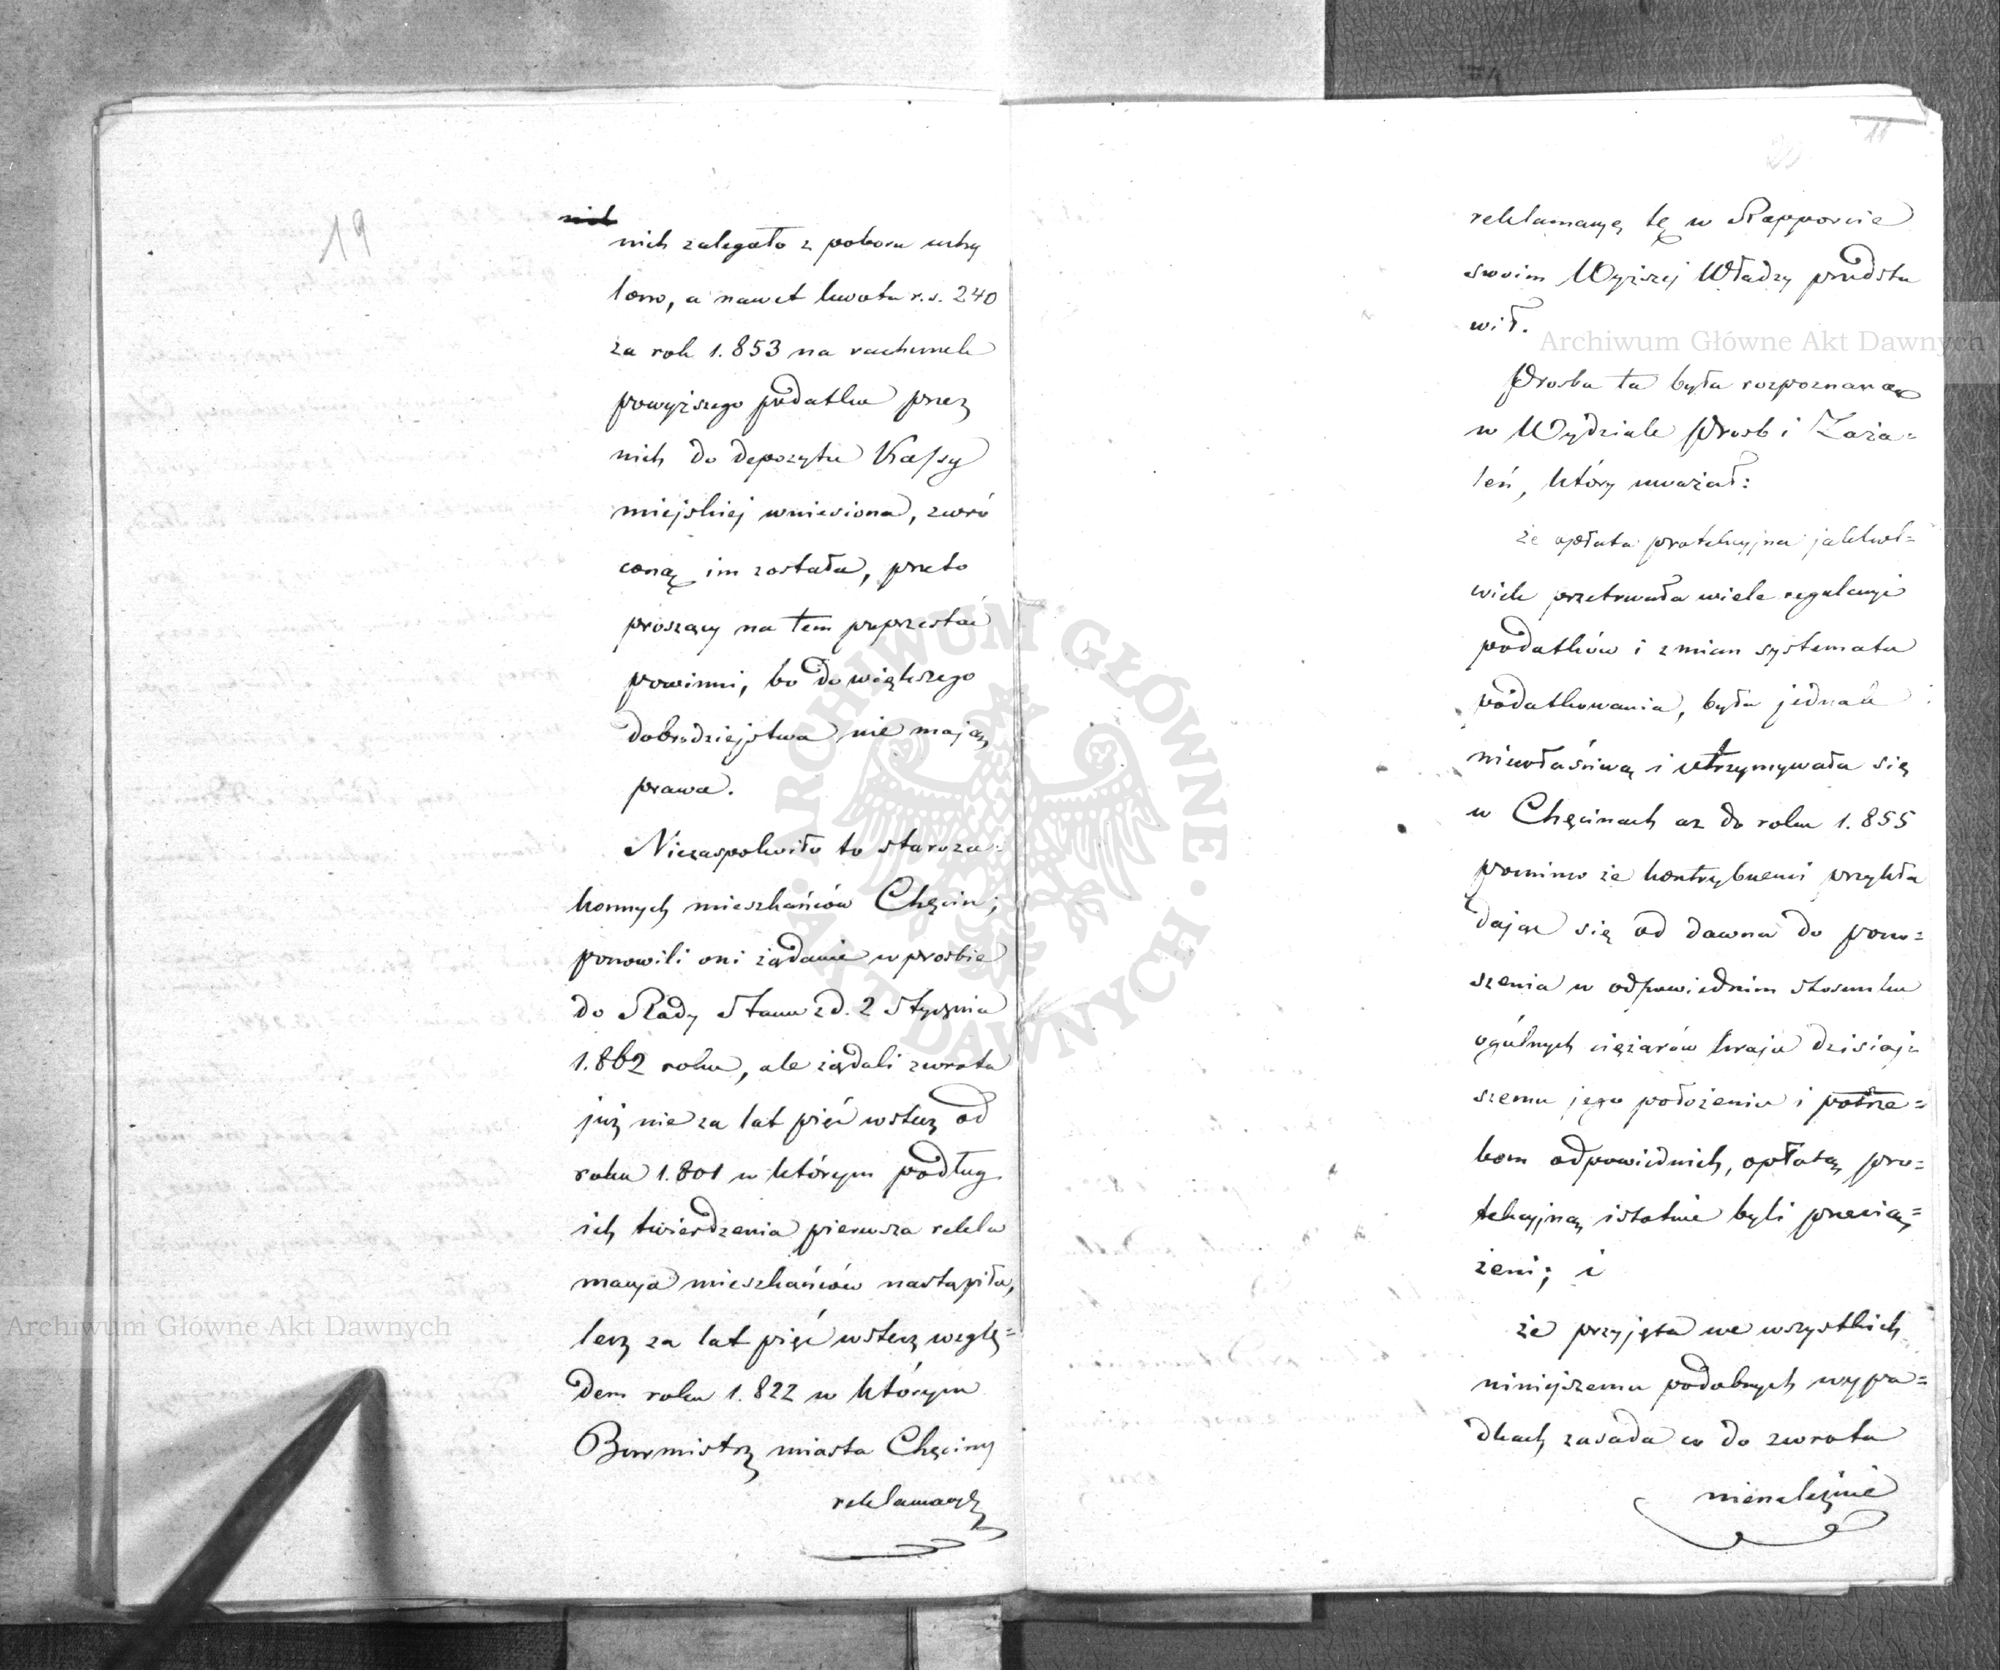 19
nich
nich zalegało z poboru uchy
lono, a nawet kwota r.s. 240
za rok 1.853 na rachunek
powyższego podatku przez
nich do depozytu Kassy
miejskiej wniesiona, zwró
coną im została, przeto
proszący na tem poprzestać
powinni, bo do większego
dobrodziejstwa nie mają
prawa.
Niezaspokoiło to staroza-
konnych mieszkańców Chęcin;
ponowili oni żądanie w prośbie
do Rady Stanu z d. 2 Stycznia
1.862 roku, ale żądali zwrotu
już nie za lat pięć wstecz od
roku 1.801 w którym podług
ich twierdzenia pierwsza rekla
macya mieszkańców nastąpiła,
lecz za lat pięć wstecz wzglę=
dem roku 1.822 w którym
Burmistrz miasta Chęciny
reklamacyę
11
20
reklamacyę tę w Rapporcie
swoim Wyższej Władzy przedsta
wił.
Prośba ta była rozpoznaną
w Wydziale Prośb i Zaża=
leń, który uważał:
że opłata protekcyjna jakkol=
wiek przetrwała wiele regulacyi
podatków i zmian systematu
podatkowania, była jednak
niewłaściwą i utrzymywała się
w Chęcinach aż do roku 1.855
pomimo że kontrybuenci przykła
dając się od dawna do pono=
szenia w odpowiednim stosunku
ogólnych ciężarów kraju dzisiej=
szemu jego położeniu i potrze=
bom odpowiednich, opłatą pro=
tekcyjną istotnie byli przecią=
żeni; i
że przyjęta we wszystkich
niniejszemu podobnych wypa=
dkach zasada co do zwrotu
nienależnie
Archiwum Główne Akt Dawnych
Archiwum Główne Akt Dawnych
ARCHIWUM GŁÓWNE AKT DAWNYCH